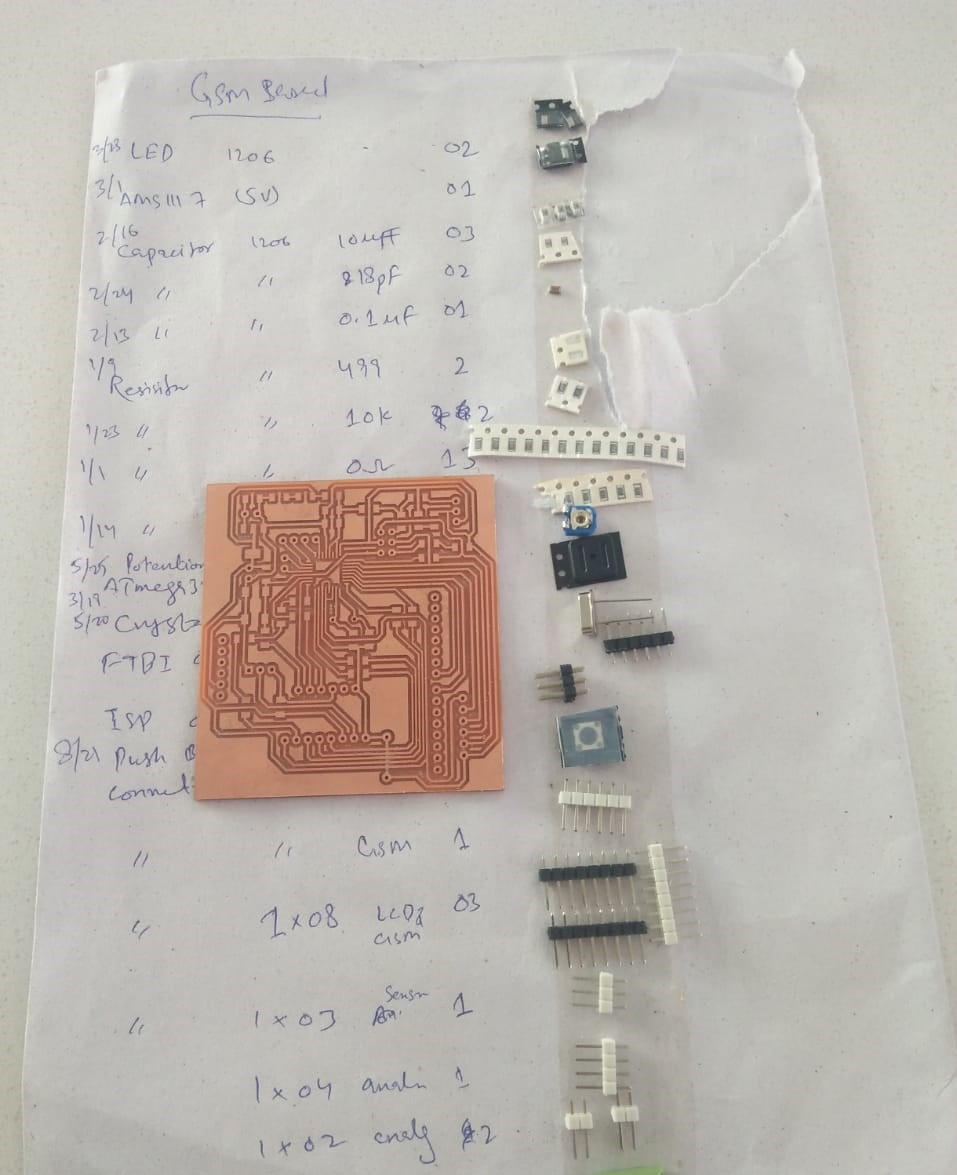 GSM Based
2/23 LED 1206 - 02
3/1 AMS1117 (5V) 01
2/16 Capacitor 1206 10uF 03
2/24 " " 18pF 02
2/13 " " 0.1uF 01
1/9 Resistor " 499 2
1/23 " " 10K 2
1/1 " " 0Ω 13
1/14 "
5/25 Potention
3/19 ATmega3
5/20 Crysta
FTDI
ISP
8/21 Push B
Connect
" " GSM 1
" 1x08 LCD& GSM 03
" 1x03 Sensor 1
1x04 analo 1
1x02 analg 2